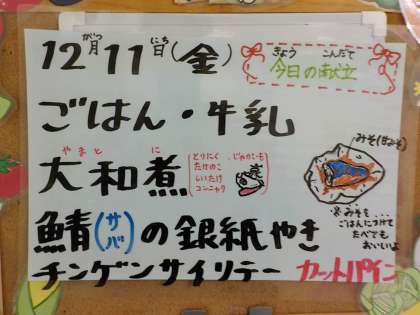 12月11日(金)
がつ にち
きょう こんだて
今日の献立
ごはん・牛乳
やまと に
大和煮
とりにく じゃがいも
たけのこ
しいたけ
コンニャク
鯖(サバ)の銀紙やき
みそ
※みそを...
ごはんにつけて
たべても
おいしいよ
チンゲンサイソテー カットパイン